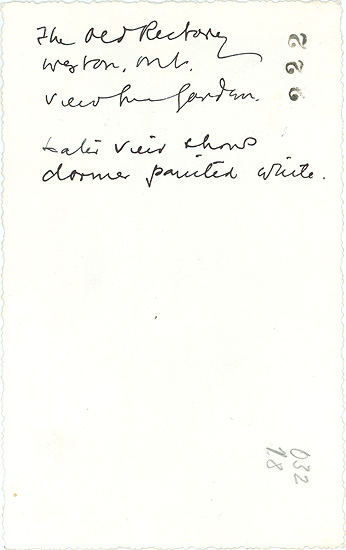 The Old Rectory
Weston, Ont.
View from Garden.
Later view shows
dormer painted white.
222
032
18